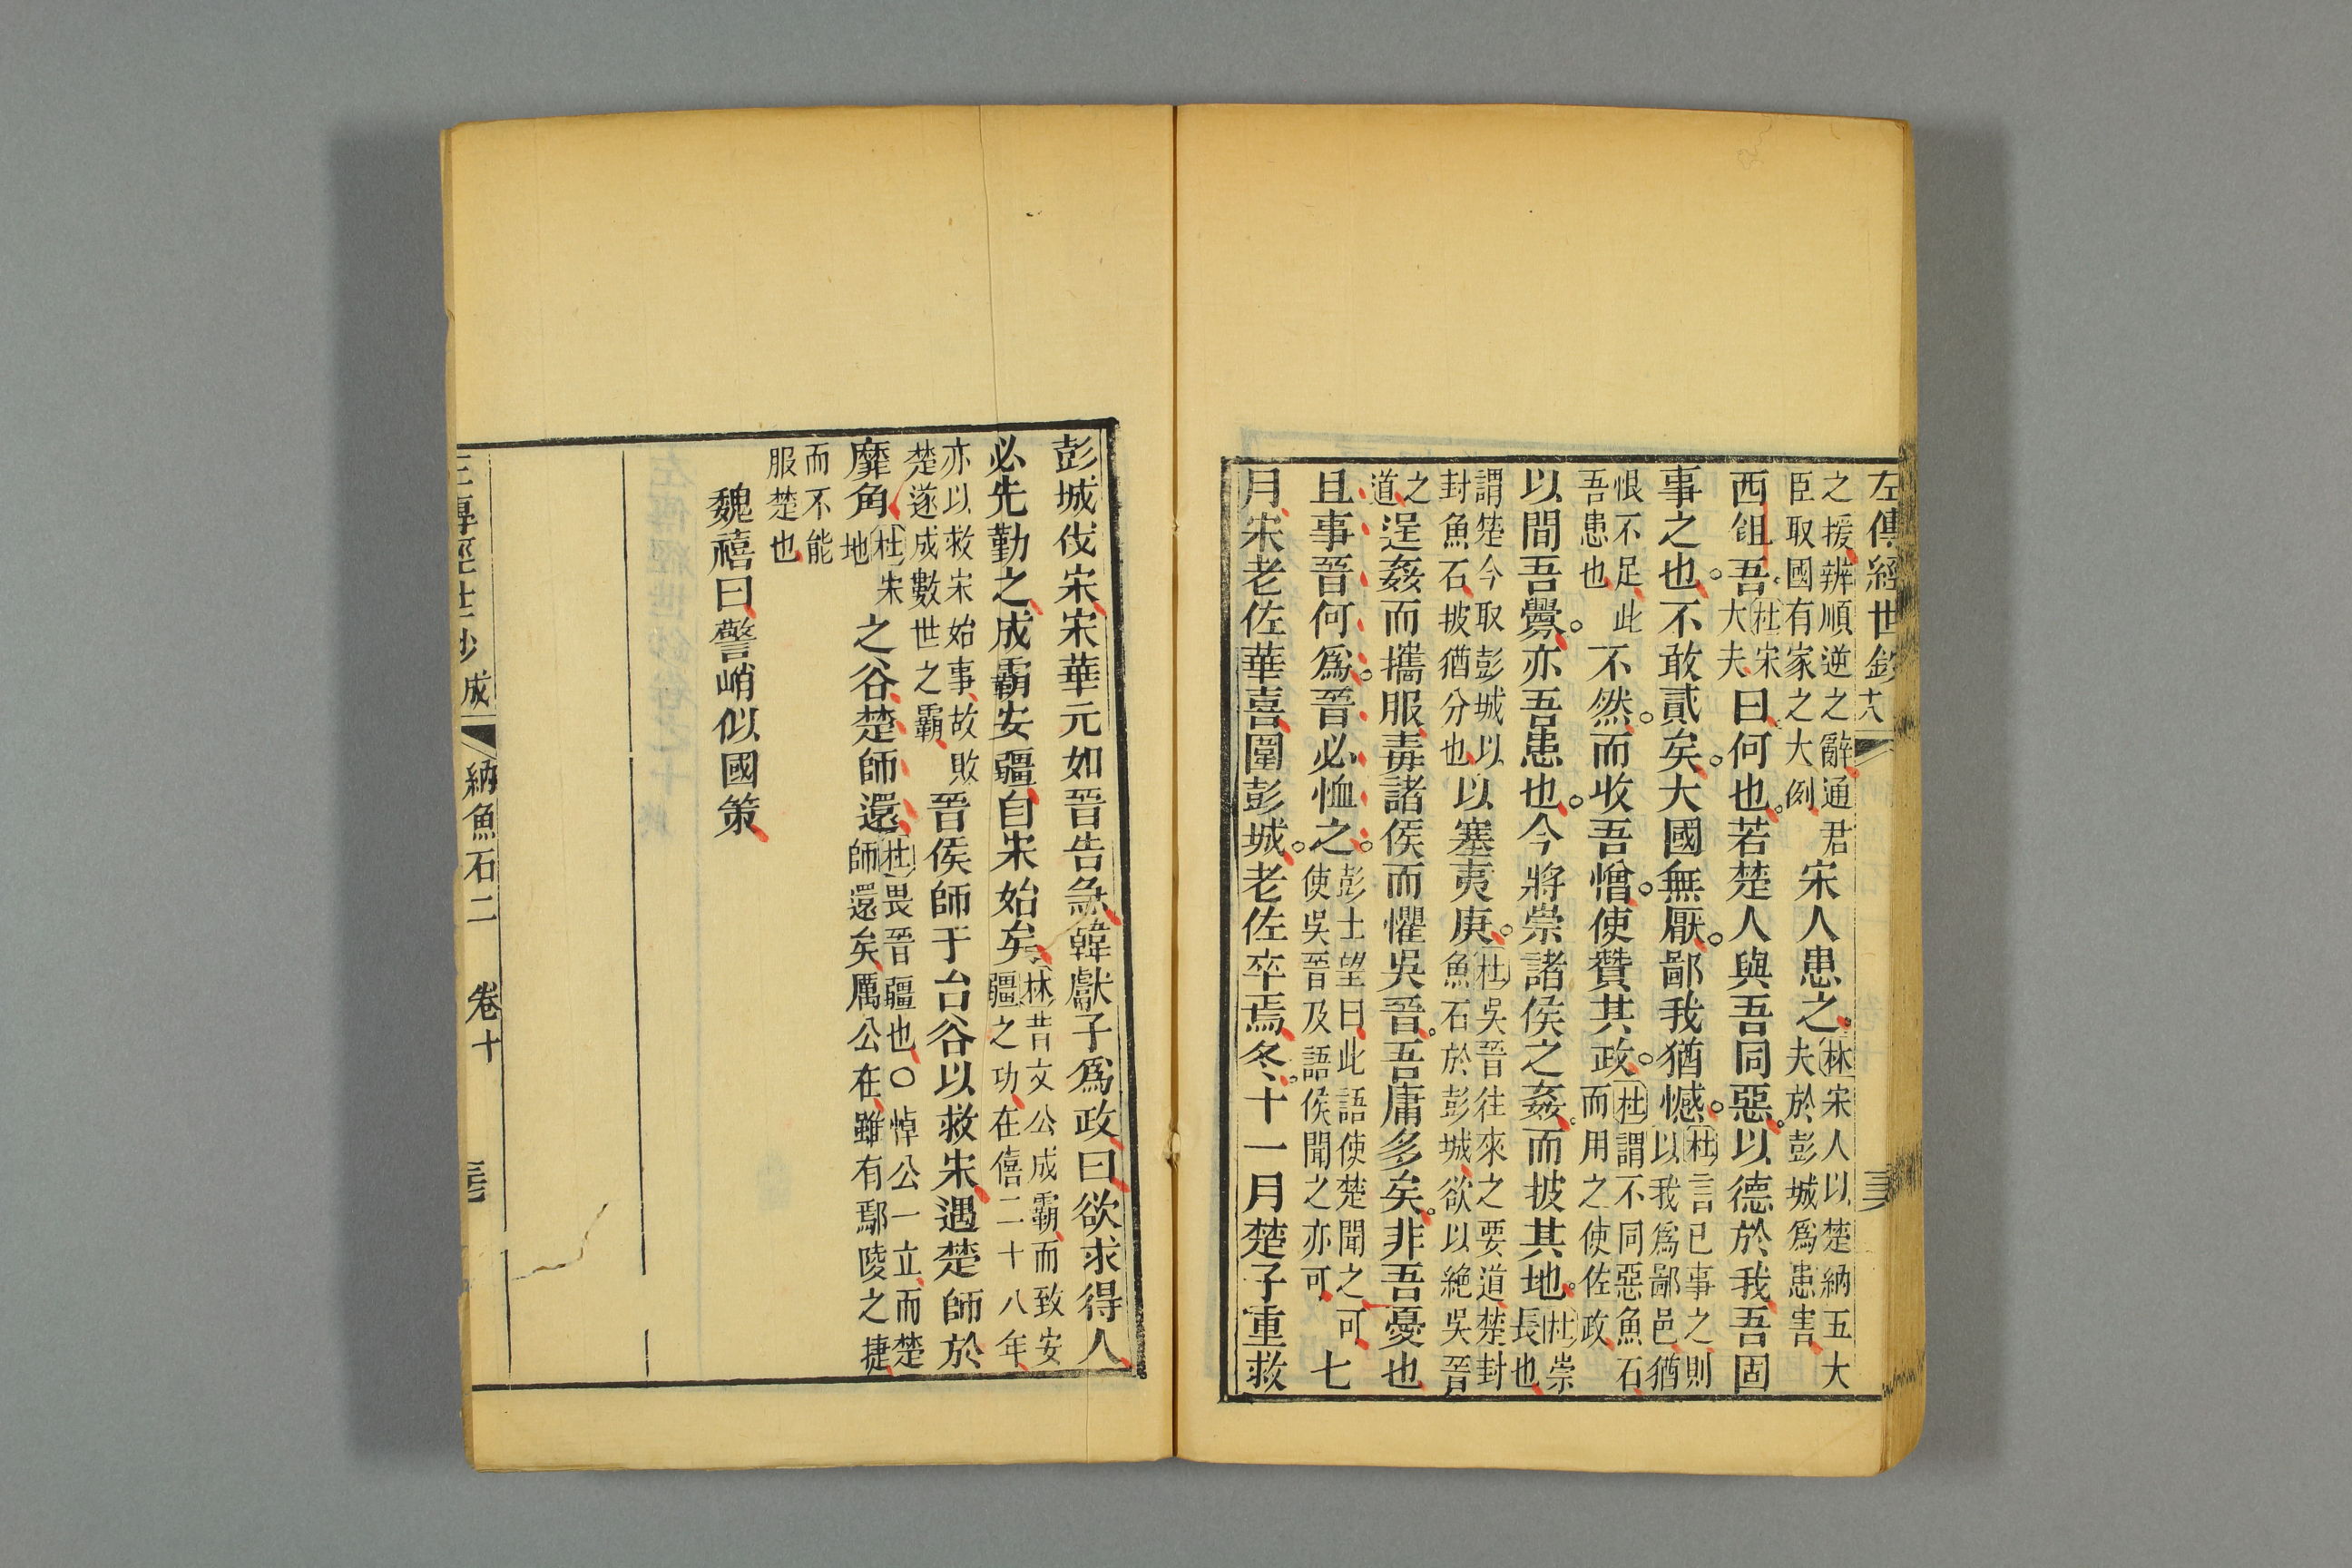 左傳經世鈔
之援辨順逆之辭通君臣取國有家之大例宋人患之林宋人以楚納五大夫於彭城爲患害
西鉏吾杜宋大夫曰何也若楚人與吾同惡以德於我吾固
事之也不敢貳矣大國無厭鄙我猶憾杜言已事之則以我爲鄙邑猶
恨不足此吾患也不然而收吾憎使贊其政杜謂不同惡魚石而用之使佐政
以間吾釁亦吾患也今將崇諸侯之姦而披其地杜崇長也
謂楚今取彭城以封魚石披猶分也以塞夷庚杜吳晉往來之要道楚封魚石於彭城欲以絶吳晉
之道逞姦而攜服毒諸侯而懼吳晉吾庸多矣非吾憂也
且事晉何爲晉必恤之彭士望曰此語使楚聞之可使吳晉及語侯聞之亦可七
月宋老佐華喜圍彭城老佐卒焉冬十一月楚子重救
彭城伐宋宋華元如晉告急韓獻子爲政曰欲求得人
必先勤之成霸安疆自宋始矣林昔文公成霸而致安疆之功在僖二十八年
亦以救宋始事故敗楚遂成數世之霸晉侯師于台谷以救宋遇楚師於
靡角杜宋地之谷楚師還杜畏晉疆也〇悼公一立而楚師還矣厲公在雖有鄢陵之捷
而不能服楚也
魏禧曰警峭似國策
左傳經世鈔 成 納魚石二 卷十